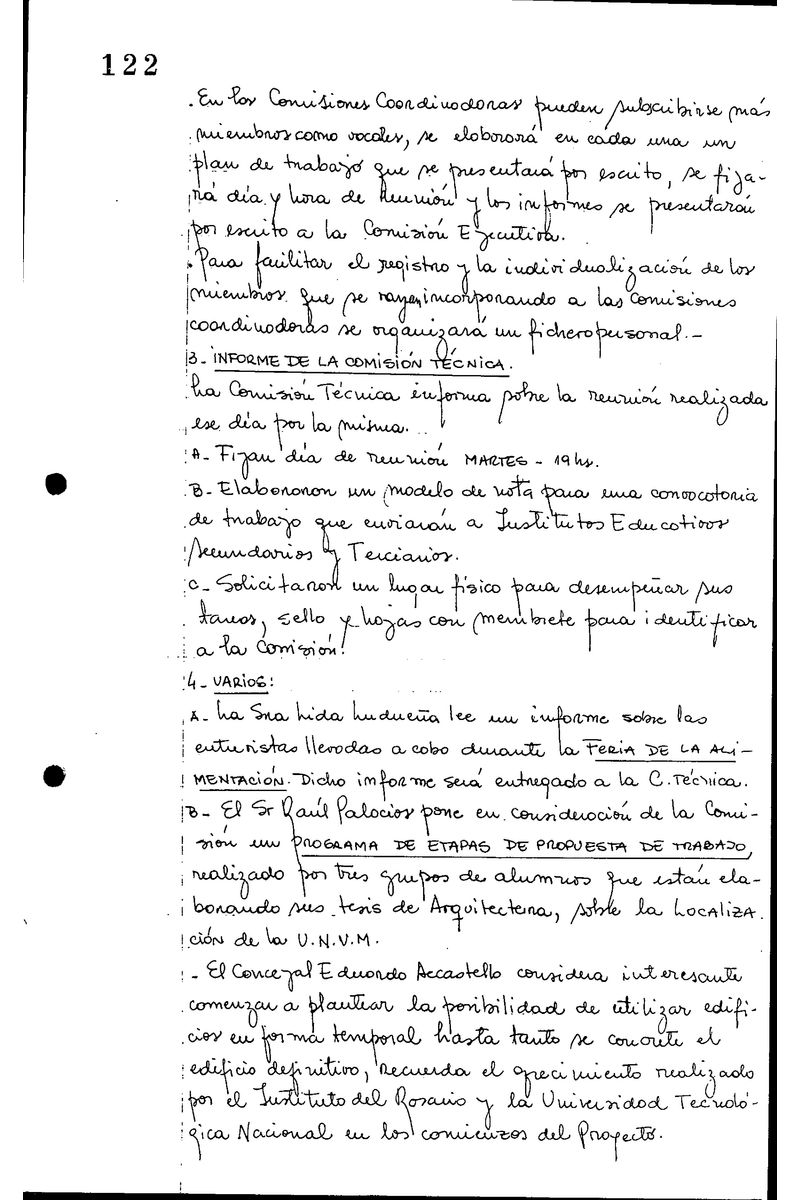 122
. En las Comisiones Coordinadoras pueden subscribirse más
miembros como vocales, se elaborará en cada una un
plan de trabajo que se presentará por escrito, se fija-
rá día y hora de reunión y los informes se presentarán
por escrito a la Comisión Ejecutiva.
. Para facilitar el registro y la individualización de los
miembros que se vayan incorporando a las comisiones
coordinadoras se organizará un fichero personal.-
3- INFORME DE LA COMISIÓN TÉCNICA.
La Comisión Técnica informa sobre la reunión realizada
ese día por la misma.
A- Fijan día de reunión MARTES - 19 hs.
B- Elaboraron un modelo de nota para una convocatoria
de trabajo que enviarán a Institutos Educativos
Secundarios y Terciarios.
C- Solicitaron un lugar físico para desempeñar sus
tareas, sello y hojas con membrete para identificar
a la Comisión.
4- VARIOS:
A- La Sra Lida Ludueña lee un informe sobre las
entrevistas llevadas a cabo durante la FERIA DE LA ALI-
MENTACIÓN. Dicho informe será entregado a la C. Técnica.
B- El Sr Raúl Palacios pone en consideración de la Comi-
sión un PROGRAMA DE ETAPAS DE PROPUESTA DE TRABAJO,
realizado por tres grupos de alumnos que están ela-
borando sus tesis de Arquitectura, sobre la LOCALIZA.
ción de la U.N.V.M.
- El Concejal Eduardo Accastello considera interesante
comenzar a plantear la posibilidad de utilizar edifi-
cios en forma temporal hasta tanto se concrete el
edificio definitivo, recuerda el ofrecimiento realizado
por el Instituto del Rosario y la Universidad Tecnoló-
gica Nacional en los comienzos del Proyecto.